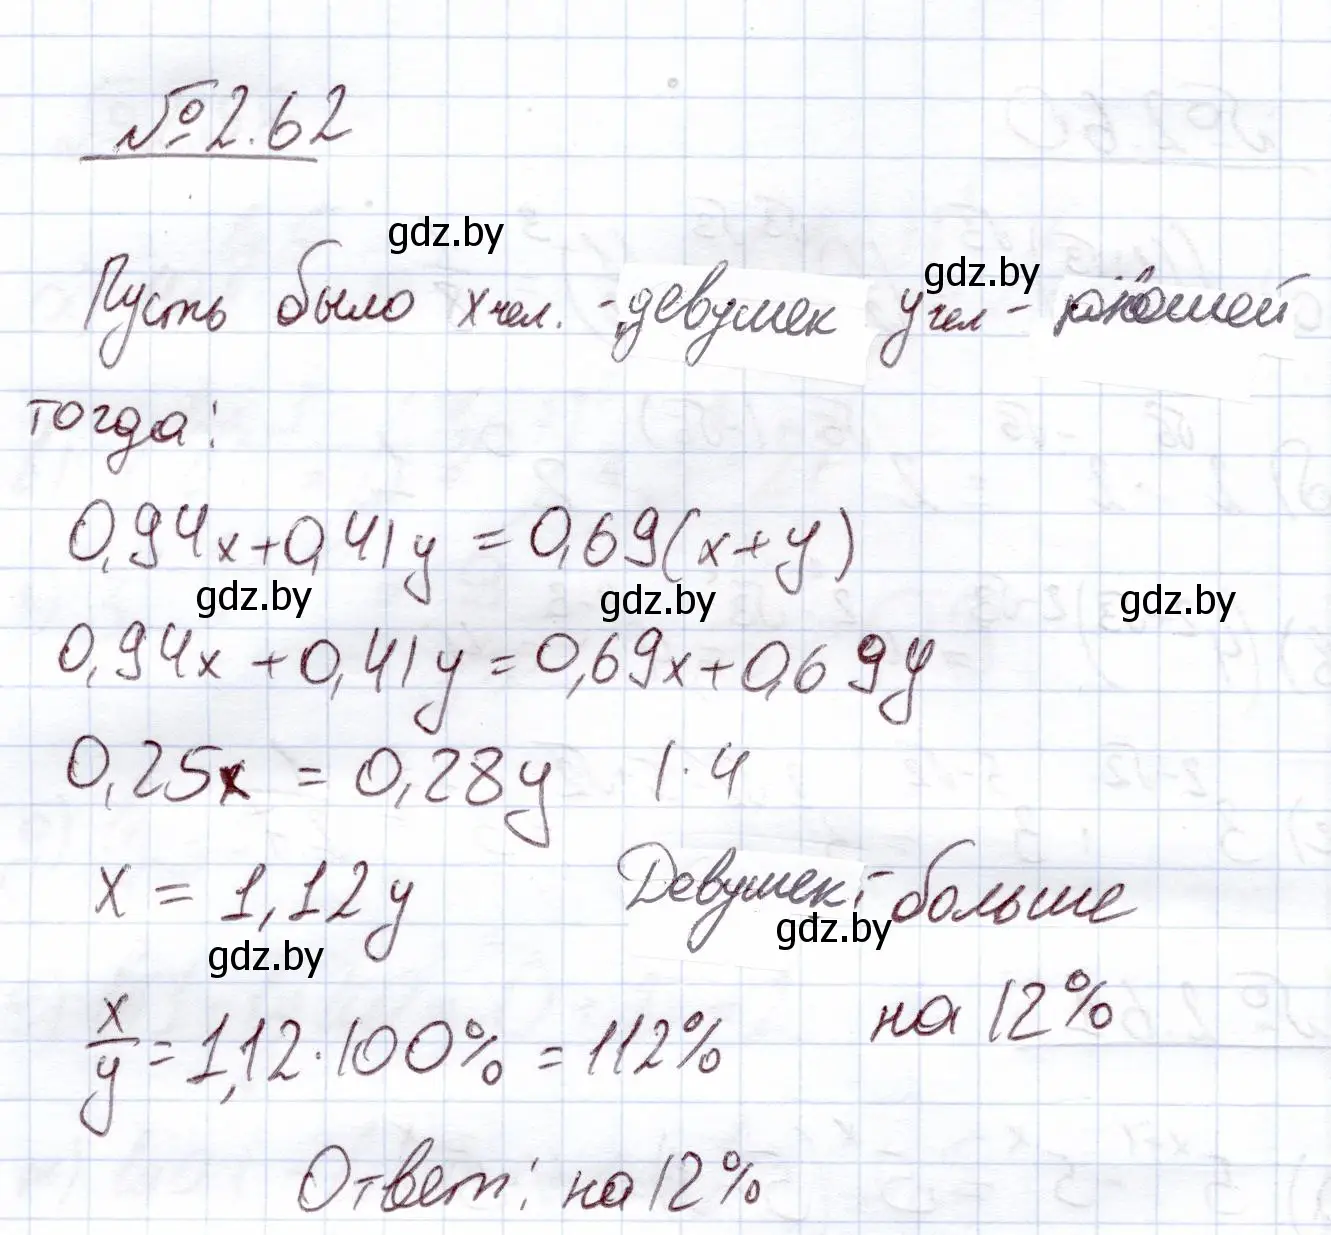 №2.62
gdz.by
gdz.by
Пусть было x чел. - девушек y чел - юношей
тогда:
0,94x+0,41y=0,69(x+y)
gdz.by gdz.by gdz.by
0,94x+0,41y=0,69x+0,69y
0,25x=0,28y |·4
x=1,12y Девушек - больше
gdz.by
gdz.by
на 12%
x/y=1,12·100%=112%
Ответ: на 12%